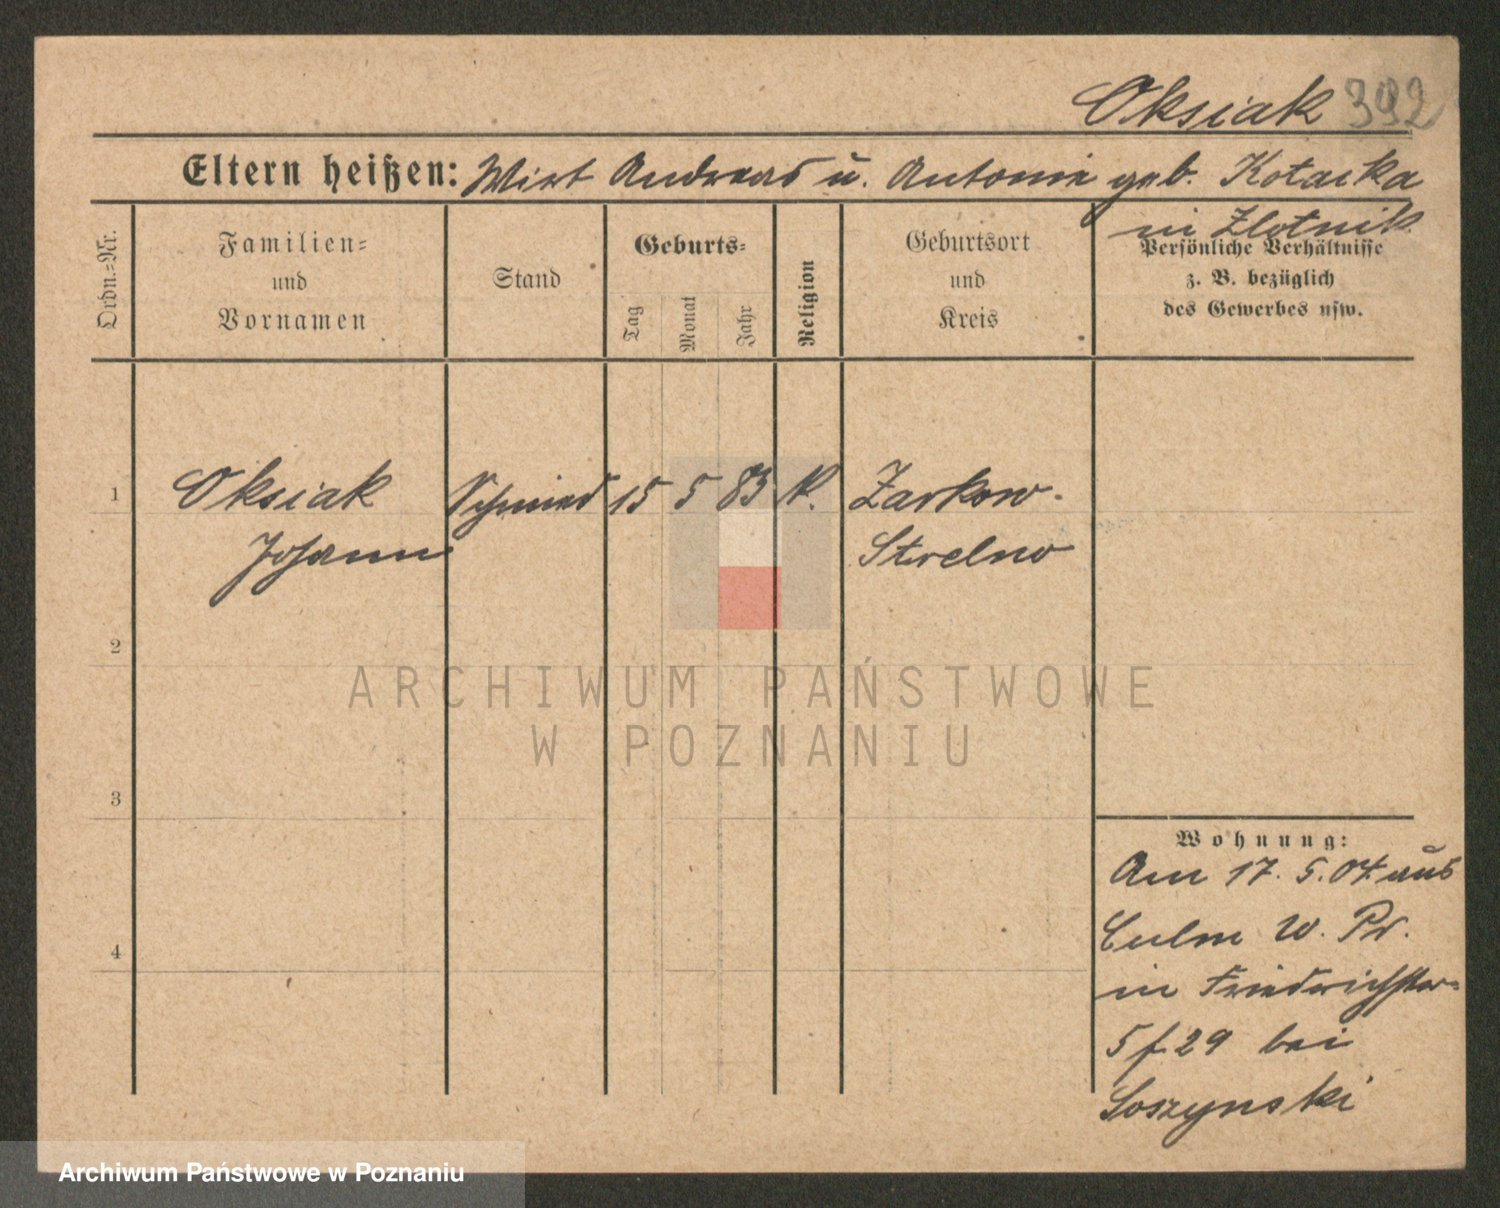 Oksiak 392
Eltern heißen: Wirt Andreas u. Antonie geb. Kotarka
in Zlotnik
Ordn.=Nr.
Familien=
und
Vornamen
Stand
Geburts=
Tag
Monat
Jahr
Religion
Geburtsort
und
Kreis
Persönliche Verhältnisse
z. B. bezüglich
des Gewerbes usw.
1 Oksiak Schmied 15 5 83 K. Zarkow-
Johann Strelno
2
3
4
ARCHIWUM PAŃSTWOWE
W POZNANIU
Wohnung:
Am 17. 5. 04 aus
Culm W. Pr.
in
29 bei
Soszynski
Archiwum Państwowe w Poznaniu